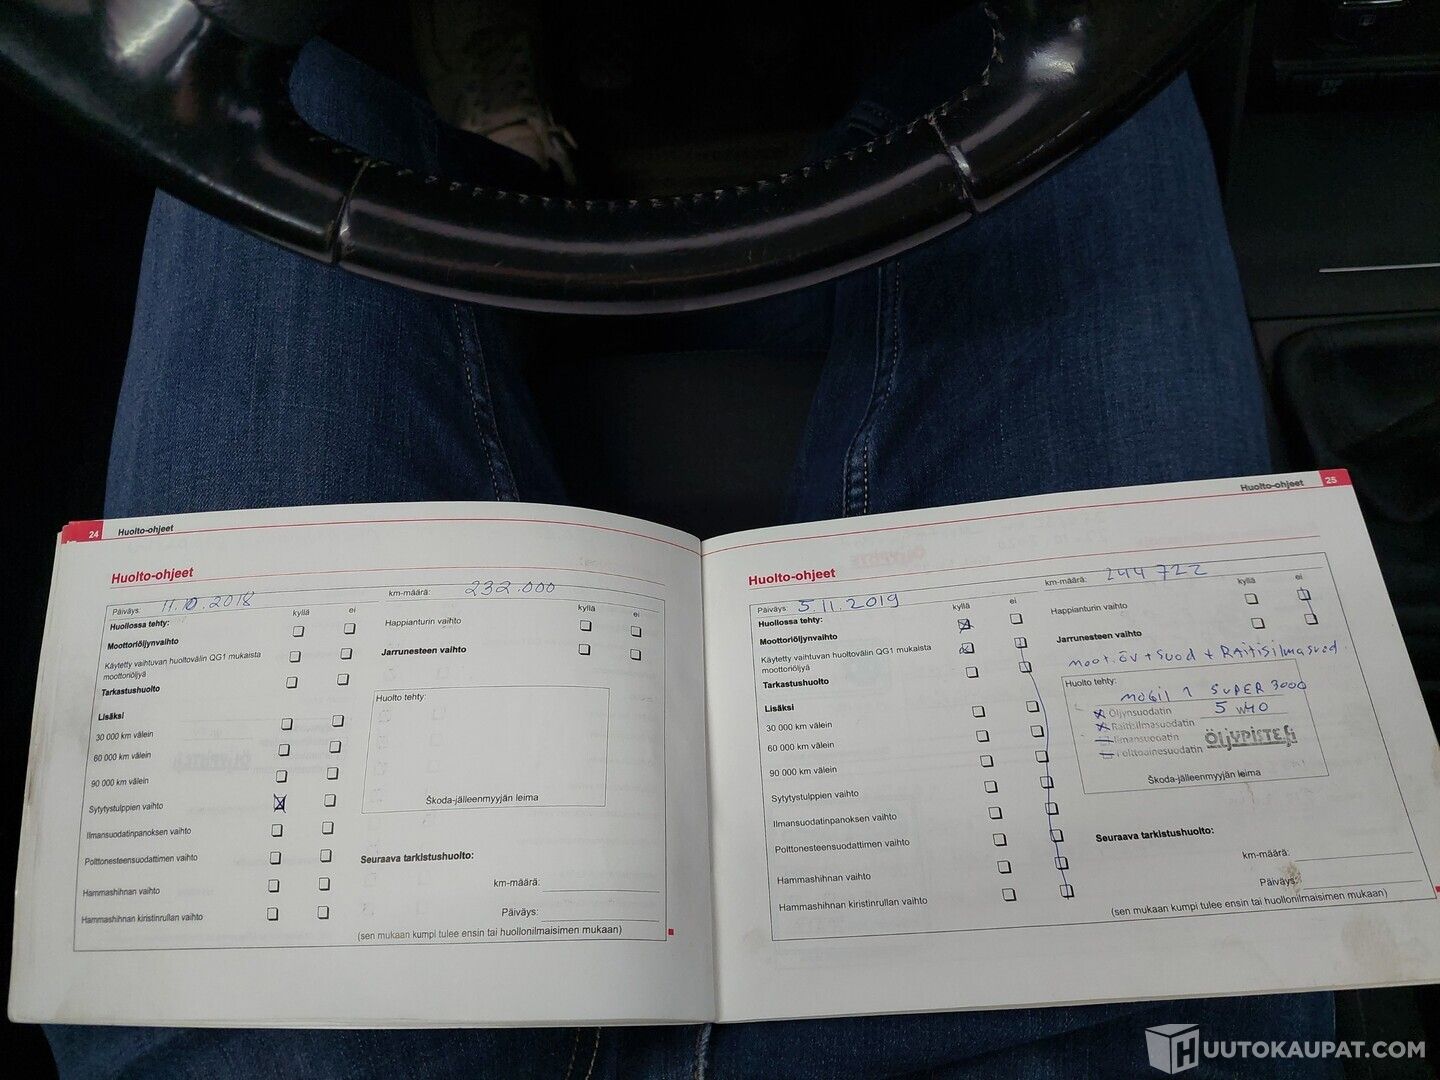 24 Huolto-ohjeet
Huolto-ohjeet
Päiväys: 11.10.2018
km-määrä: 232.000
Huollossa tehty:
kyllä ei
Moottoriöljynvaihto
Käytetty vaihtuvan huoltovälin QG1 mukaista
moottoriöljyä
Tarkastushuolto
Lisäksi
30 000 km välein
60 000 km välein
90 000 km välein
Sytytystulppien vaihto
Ilmansuodatinpanoksen vaihto
Polttonesteensuodattimen vaihto
Hammashihnan vaihto
Hammashihnan kiristinrullan vaihto
kyllä ei
Happianturin vaihto
Jarrunesteen vaihto
Huolto tehty:
Škoda-jälleenmyyjän leima
Seuraava tarkistushuolto:
km-määrä:
Päiväys:
(sen mukaan kumpi tulee ensin tai huollonilmaisimen mukaan)
Huolto-ohjeet 25
Huolto-ohjeet
Päiväys: 5.11.2019
km-määrä: 244 722
Huollossa tehty:
kyllä ei
Moottoriöljynvaihto
Käytetty vaihtuvan huoltovälin QG1 mukaista
moottoriöljyä
Tarkastushuolto
Lisäksi
30 000 km välein
60 000 km välein
90 000 km välein
Sytytystulppien vaihto
Ilmansuodatinpanoksen vaihto
Polttonesteensuodattimen vaihto
Hammashihnan vaihto
Hammashihnan kiristinrullan vaihto
kyllä ei
Happianturin vaihto
Jarrunesteen vaihto
moot. öv + suod + RAITISilmasuod.
Huolto tehty:
MOBIL 1 SUPER 3000
Öljynsuodatin 5 W40
Raitisilmasuodatin
Ilmansuodatin
Polttoainesuodatin
ÖLJYPISTE.fi
Škoda-jälleenmyyjän leima
Seuraava tarkistushuolto:
km-määrä:
Päiväys:
(sen mukaan kumpi tulee ensin tai huollonilmaisimen mukaan)
HUUTOKAUPAT.COM